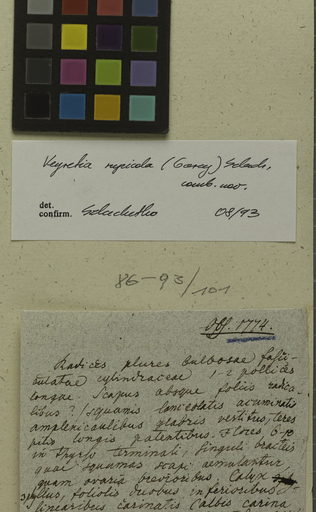 Veyretia rupicola (Garay) Szlach.,
comb. nov.
det.
confirm. Szlachetko 08/93
86-93/101
Off. 1774.
Radices plures bulbosae fasci-
culatae cylindraceae 1-2 pollices
longae. Scapus absque foliis radica-
libus? squamis lanceolatis acuminatis
amplexicaulibus glabris vestitus, teres
longis patentibus. Flores 6-10
in thyrso terminali, singuli bracteis
quae squamas scapi aemulantur,
quam ovaria brevioribus. Calyx
phyllus, foliolis duobus inferioribus
linearibus carinatis Calbis carina